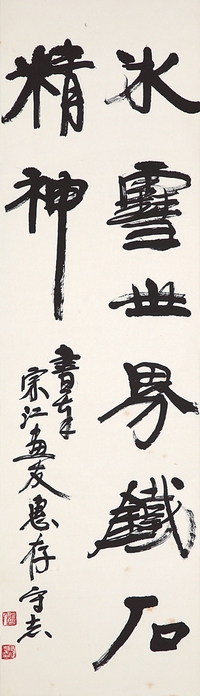 冰雪世界鐵石
精神
書奉
宋江畫友惠存守志